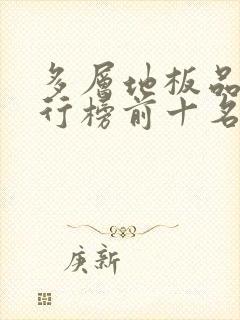 多層地板品
行榜前十名
庚新